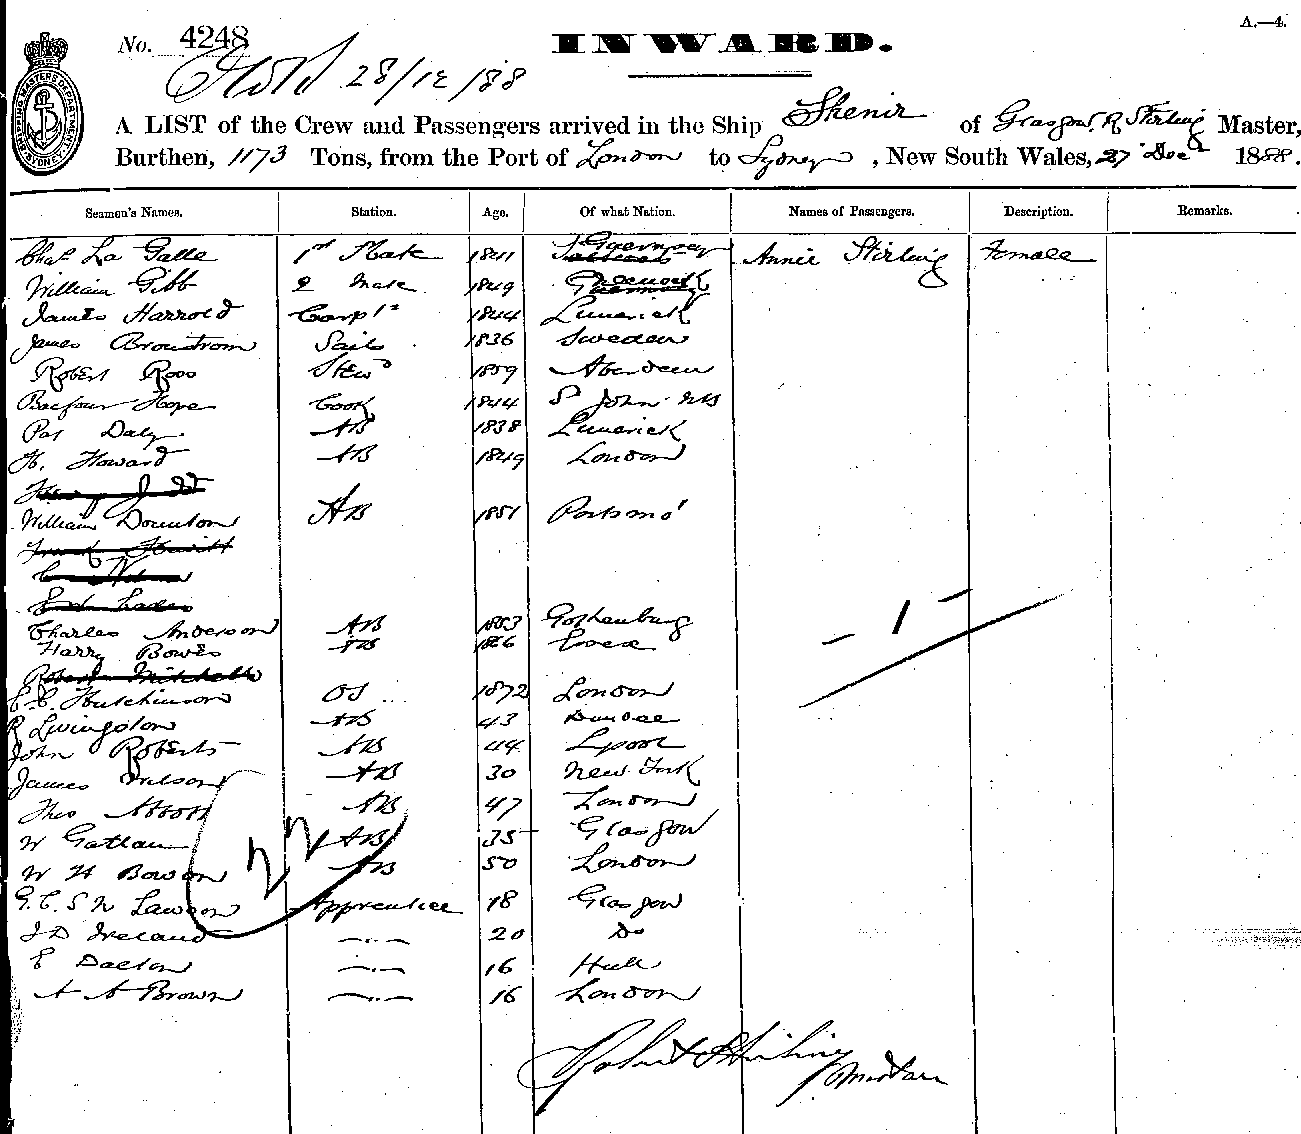 A.—4.
No. 4248
INWARD.
28/12/88
SHIPPING MASTERS DEPARTMENT SYDNEY
A LIST of the Crew and Passengers arrived in the Ship Skenir of Glasgow, R Stirling Master,
Burthen, 1173 Tons, from the Port of London to Sydney, New South Wales, 27 Dec 1888.
Seamen's Names. Station. Age. Of what Nation. Names of Passengers. Description. Remarks.
Chas La Galle 1st Mate 1841 Guernsey Annie Stirling Female
William Gibb 2 Mate 1849
James Harrold Carptr 1844 Limerick
James Bromstrom Sails 1836 Sweden
Robert Ross Stewd 1859 Aberdeen
Balfour Hope Cook 1844 St John NB
Pat Daly AB 1838 Limerick
H. Howard AB 1849 London
William Dounton AB 1851 Portsmo'
Charles Anderson AB 1863 Gothenburg
Harry Bowes AB 1866 Essex
- 1 -
Robert Mitchell
E.C. Hutchinson OS 1872 London
R Livingston AB 43 Dundee
John Roberts AB 44 Lpool
James Wilson AB 30 New York
Thos Abbott AB 47 London
W Gatlau AB 35 Glasgow
22
W H Bowon AB 50 London
G.C.S.N Lawson Apprentice 18 Glasgow
J D Ireland —..— 20 Do
E Dalton —..— 16 Hull
A A Brown —..— 16 London
Robert Stirling
Master